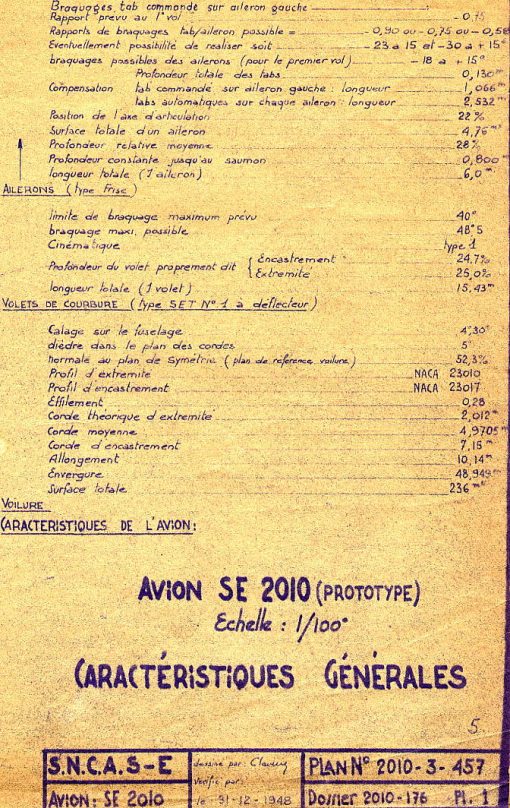 Braquages, tab commandé sur aileron gauche
Rapport prévu au 1er vol - 0,75
Rapports de braquages tab/aileron possible = - 0,90 ou - 0,75 ou - 0,58
Eventuellement possibilité de realiser soit - 23 a 15 et - 30 a + 15°
braquages possibles des ailerons (pour le premier vol) - 18 a + 15°
Profondeur totale des tabs 0,130m
Compensation tab commandé sur aileron gauche: longueur 1,066m
tabs automatiques sur chaque aileron: longueur 2,532m
Position de l'axe d'articulation 22%
Surface totale d'un aileron 4,76m²
Profondeur relative moyenne 28%
Profondeur constante jusqu'au saumon 0,800m
longueur totale (1 aileron) 6,0m
AILERONS (type Frise)
limite de braquage maximum prévu 40°
braquage maxi. possible 48°5
Cinématique type 1
Profondeur du volet proprement dit { Encastrement 24,7%
Extremité 25,0%
longueur totale (1 volet) 15,43m
VOLETS DE COURBURE (type SET N° 1 à déflecteur)
Calage sur le fuselage 4,30°
dièdre dans le plan des cordes 5°
normale au plan de symetrie (plan de reference voilure) 52,3%
Profil d'extremité NACA 23010
Profil d'encastrement NACA 23017
Effilement 0,28
Corde theorique d'extremité 2,012m
Corde moyenne 4,9705m
Corde d'encastrement 7,15m
Allongement 10,14m
Envergure 48,949m
Surface totale 236m²
VOILURE
CARACTERISTIQUES DE L'AVION:
AVION SE 2010 (PROTOTYPE)
Echelle : 1/100°
CARACTÉRISTIQUES GÉNÉRALES
5
S.N.C.A.S-E dessiné par: PLAN N° 2010-3-457
Vérifié par:
AVION: SE 2010 le 31-12-1948 Dossier 2010-176 Pl. 1